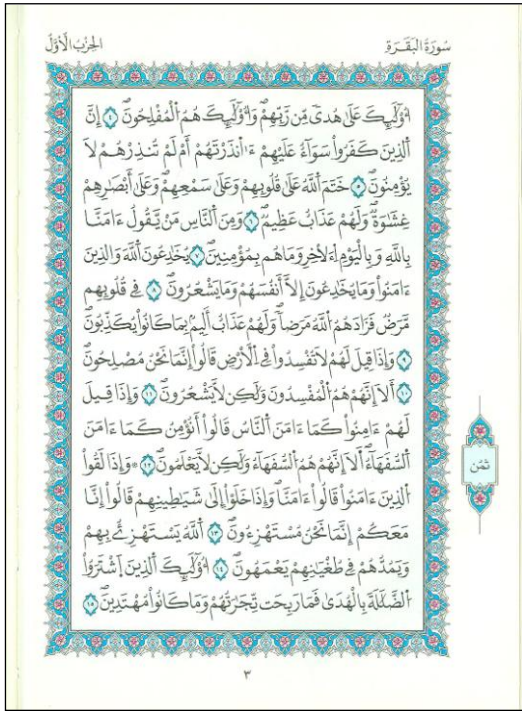 سُورَةُ الْبَقَرَةِ
الحِزْبُ الْأَوَّلُ
أُوْلَٰٓئِكَ عَلَىٰ هُدىً مِّن رَّبِّهِمْ وَأُوْلَٰٓئِكَ هُمُ اُلْمُفْلِحُونَۖ ٤ إِنَّ
اَلذِينَ كَفَرُواْ سَوَآءٌ عَلَيْهِمْ ءَآنذَرْتَهُمُۥٓ أَمْ لَمْ تُنذِرْهُمْ لَا
يُؤْمِنُونَۖ ٥ خَتَمَ اَللَّهُ عَلَىٰ قُلُوبِهِمْ وَعَلَىٰ سَمْعِهِمْۖ وَعَلَىٰٓ أَبْصَٰرِهِمْ
غِشَٰوَةٞۖ وَلَهُمْ عَذَابٌ عَظِيمٞۖ ٦ وَمِنَ اَلنَّاسِ مَنْ يَّقُولُ ءَامَنَّا
بِاللَّهِ وَبِالْيَوْمِ اِلَاخِرِ وَمَا هُم بِمُؤْمِنِينَۖ ٧ يُخَٰدِعُونَ اَللَّهَ وَالذِينَ
ءَامَنُواْ وَمَا يُخَٰدِعُونَ إِلَّآ أَنفُسَهُمْ وَمَا يَشْعُرُونَۖ ٨ فِي قُلُوبِهِم
مَّرَضٞ فَزَادَهُمُ اُللَّهُ مَرَضاٗۖ وَلَهُمْ عَذَابٌ أَلِيمُۢ بِمَا كَانُواْ يُكَذِّبُونَۖ
٩ وَإِذَا قِيلَ لَهُمْ لَا تُفْسِدُواْ فِي اِلْأَرْضِ قَالُوٓاْ إِنَّمَا نَحْنُ مُصْلِحُونَۖ
١٠ أَلَآ إِنَّهُمْ هُمُ اُلْمُفْسِدُونَ وَلَٰكِن لَّا يَشْعُرُونَۖ ١١ وَإِذَا قِيلَ
لَهُمُۥٓ ءَامِنُواْ كَمَآ ءَامَنَ اَلنَّاسُ قَالُوٓاْ أَنُؤْمِنُ كَمَآ ءَامَنَ
اَلسُّفَهَآءُۖ أَلَآ إِنَّهُمْ هُمُ اُلسُّفَهَآءُ وَلَٰكِن لَّا يَعْلَمُونَۖ ١٢ ۞ وَإِذَا لَقُواْ
اُلذِينَ ءَامَنُواْ قَالُوٓاْ ءَامَنَّاۖ وَإِذَا خَلَوْاْ اِلَىٰ شَيَٰطِينِهِمْ قَالُوٓاْ إِنَّا
مَعَكُمُۥٓ إِنَّمَا نَحْنُ مُسْتَهْزِءُونَۖ ١٣ اَللَّهُ يَسْتَهْزِۓُ بِهِمْ
وَيَمُدُّهُمْ فِي طُغْيَٰنِهِمْ يَعْمَهُونَۖ ١٤ أُوْلَٰٓئِكَ اَلذِينَ اَشْتَرَوُاْ
اُلضَّلَٰلَةَ بِالْهُدَىٰ فَمَا رَبِحَت تِّجَٰرَتُهُمْ وَمَا كَانُواْ مُهْتَدِينَۖ ١٥
ثُمُن
٣